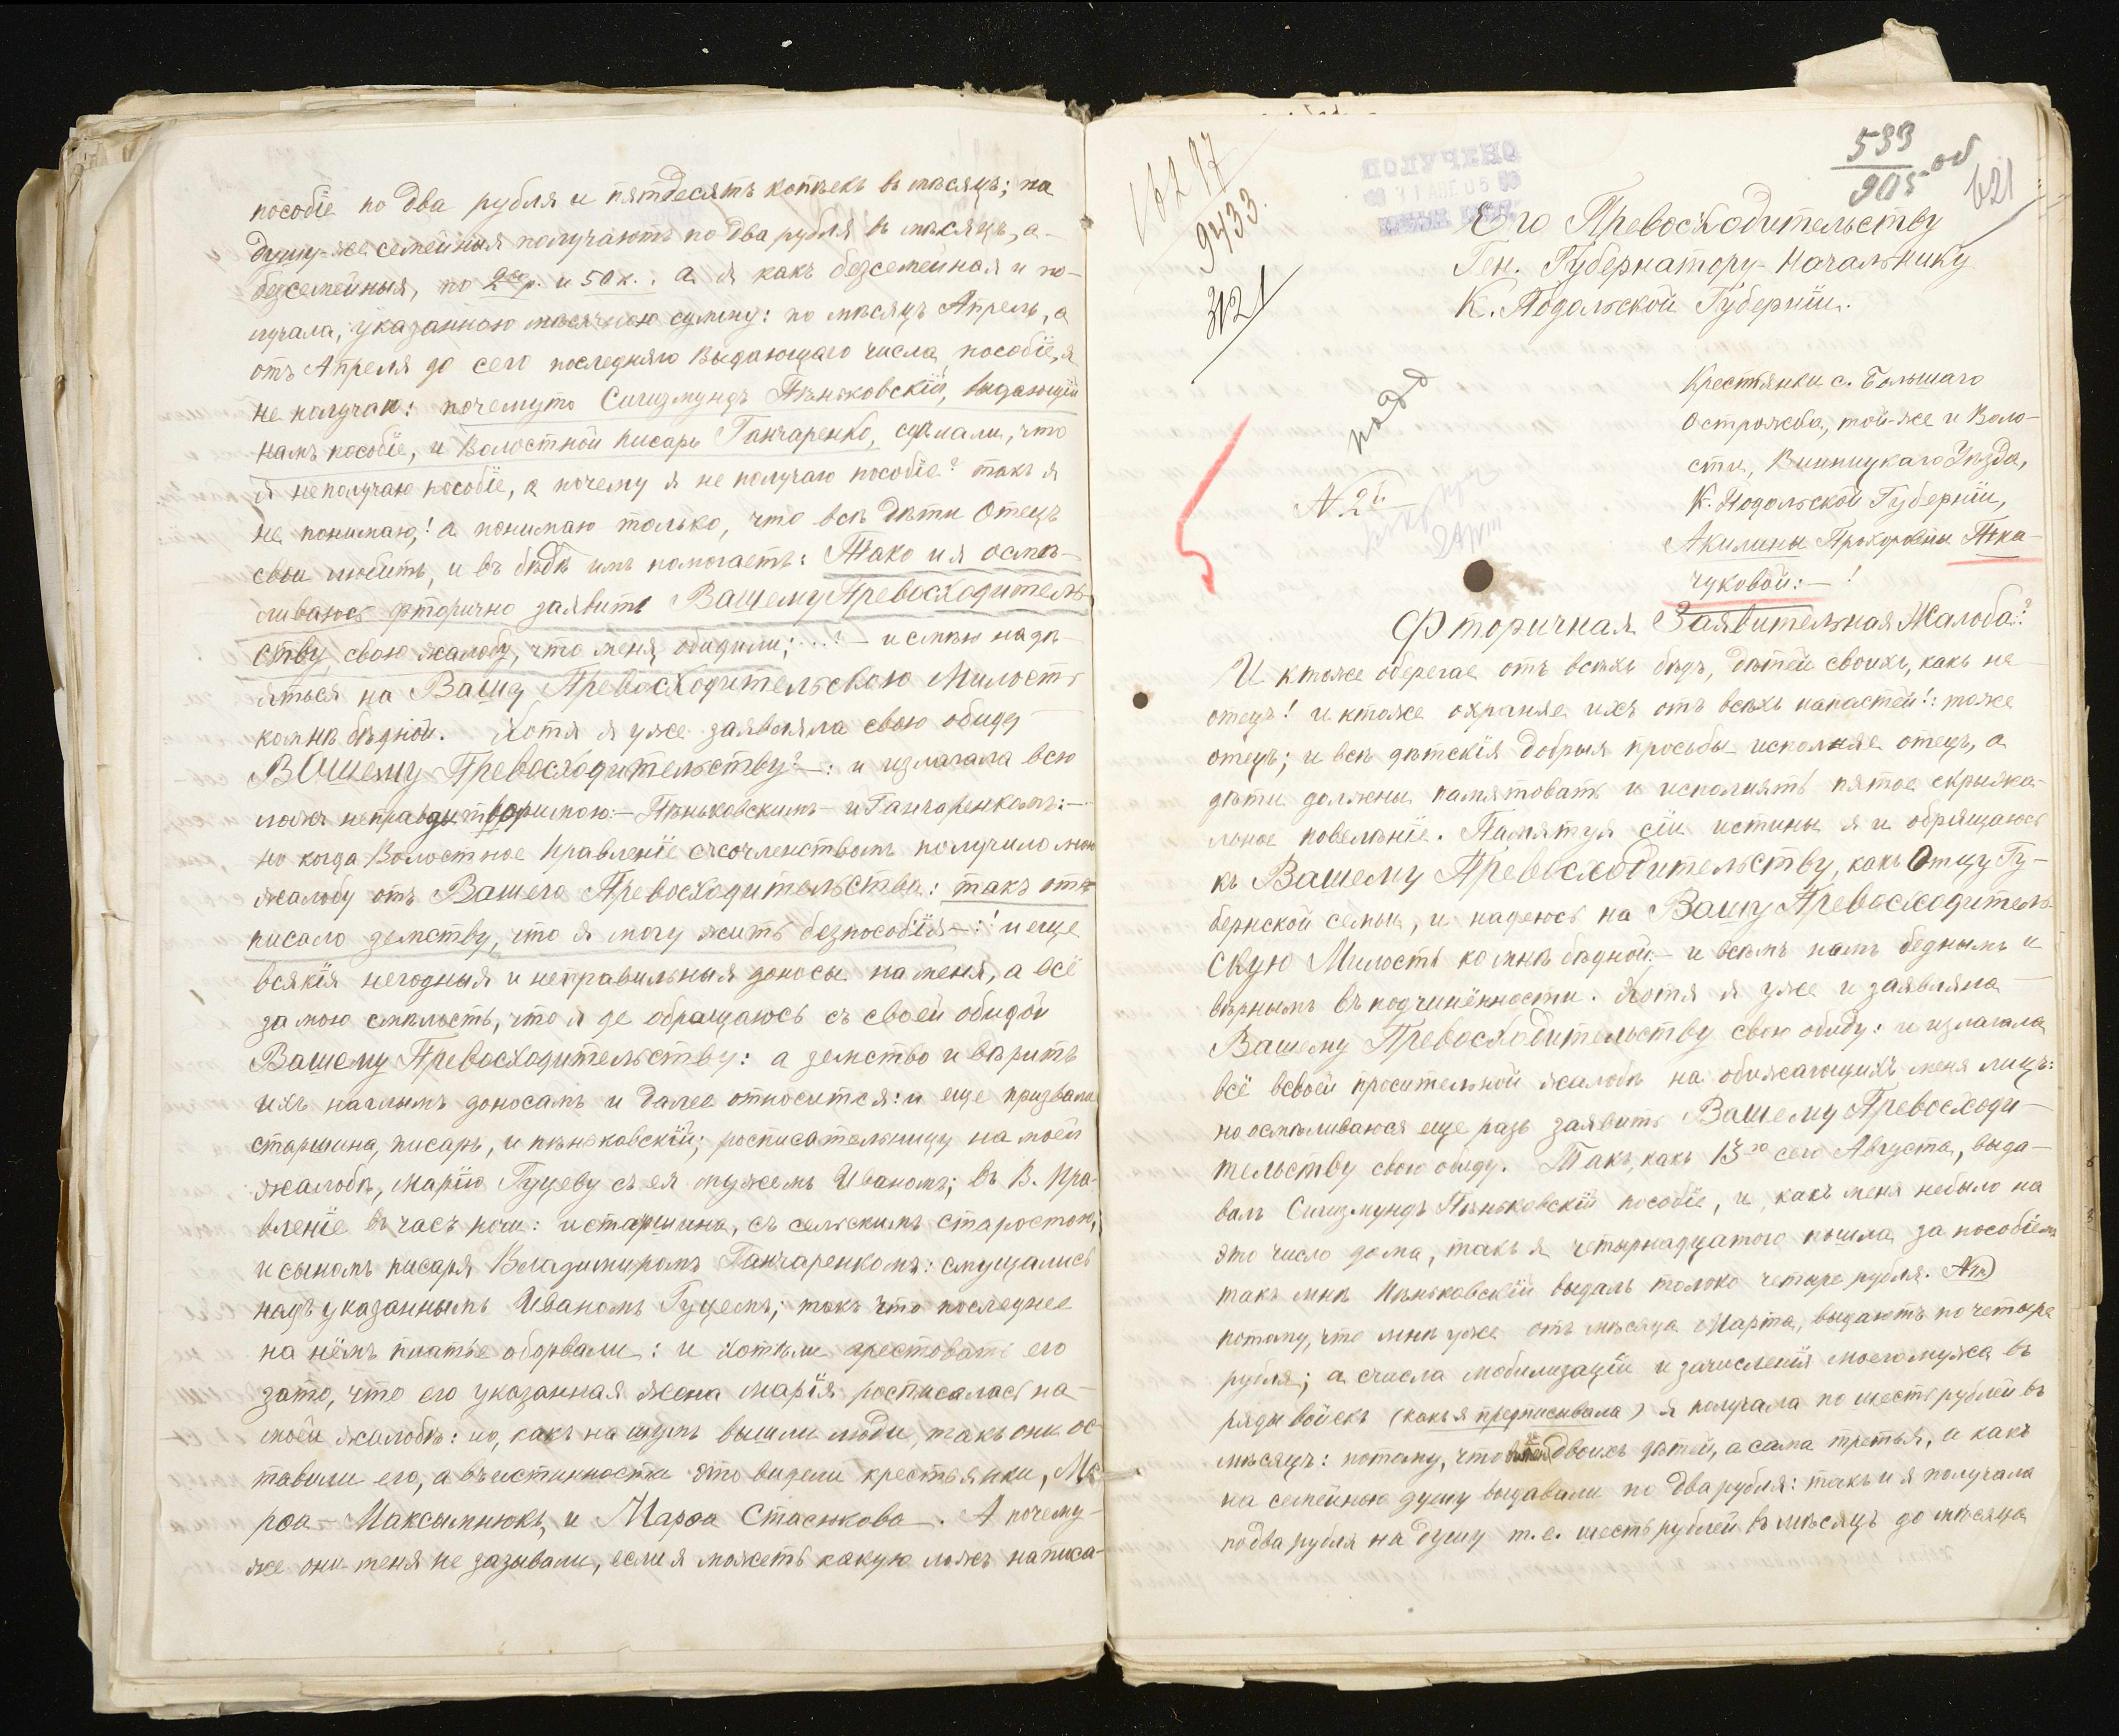 пособіе по два рубля и пятдесятъ копѣекъ въ мѣсяцъ; на
душу-же семейныя получаютъ по два рубля въ мѣсяцъ, а-
безсемейныя, по 2 р. и 50 к.: а я какъ безсемейная и по-
лучала, указанною мѣсячною сумму: по мѣсяцъ Апрель, а
отъ Апреля до сего последняго выдающаго числа, пособіе, я
не получаю: почемуто Сигизмундъ Пѣньковскій, выдающій
намъ пособіе, и Волостной писарь Ганчаренко, сдѣлали, что
я неполучаю пособіе, а почему я не получаю пособіе? такъ я
не понимаю,! а понимаю только, что всѣ дѣти Отецъ
свои любитъ, и въ бѣдѣ имъ помогаетъ: Тако и я осмѣ-
ливаюсь фторично заявить Вашему Превосходитель-
ству, свою жалобу, что меня, обидили; ...! - и смѣю надѣ-
яться на Вашу Превосходительскою Милость
комнѣ бѣдной. Хотя я уже заявляла свою обиду
Вашему Превосходительству?—: и излагала всю
ложъ неправды творимою:— Пѣньковскимъ- и Ганчаренкамъ:—
но когда Волостное Правленіе съсочленствомъ получило мою
жалобу отъ Вашего Превосходительства: такъ отъ
писало земству, что я могу жить безпособія—:! и еще
всякія негодныя и неправильныя доносы на меня, а всё
за мою смѣлость, что я де обращаюсь съ своей обидой
Вашему Превосходительству: а земство и вѣритъ
ихъ наглымъ доносамъ и далее относится: и еще призвали
старшина, писарь, и пѣньковскій; росписательницу на моей
жалобѣ, Марію Гуцеву съ ея мужемъ Иваномъ; въ В. Пра-
вленіе въ часъ ночи: и старшина, съ сельскимъ старостою,
и сыномъ писаря Владимиромъ Ганчаренкомъ: смущались
надъ указаннымъ Иваномъ Гуцемъ; такъ что последнее
на нёмъ платье оборвали: и хотѣли арестовать его
зато, что его указанная жена Марія росписалась на-
моей жалобѣ: но, какъ на шумъ вышли люди, такъ они ос-
тавили его, а въистинности это видели крестьянки, Ма-
рфа— Максымнюкъ, и Марфа Стасюкова—. А почему-
же они меня не зазывали, если я можетъ какую ложъ написа-
16297
9433.
3121
ПОЛУЧЕНО
31 АВГ 05
539
905 об
621
Его Превосходительству
Ген. Губернатору- Начальнику
К. Подольской Губерніи.
Крестьянки с. Большаго
Острожка, той-же и Воло-
сти, Винницкаго Уѣзда,
К. Подольской Губерніи,
Акилины Прохоровны Тка-
чуковой:— !
N 2й
24/VIII
Фторичная Заявительная Жалоба:?
И ктоже оберегае отъ всѣхъ бѣдъ, дѣтей своихъ, какъ не-
отецъ! и ктоже охраняе ихъ отъ всѣхъ напастей!: тоже
отецъ; и всѣ дѣтскія добрыя просьбы исполняе отецъ, а
дѣти должны памятовать и исполнять пятое скрижа-
льное повелѣніе. Памятуя сіи истины я и обрящаюсь
къ Вашему Превосходительству, какъ Отцу Гу-
бернской семьи, и надеюсь на Вашу Превосходитель-
скую Милость ко мнѣ бѣдной;- и всѣмъ намъ беднымъ и
вѣрнымъ въ подчинённости. Хотя я уже и заявляла—
Вашему Превосходительству свою обиду: и излагала
всё всвоей просительной жалобѣ на обижающихъ меня лицъ:
но осмѣливаюся еще разъ заявить Вашему Превосходи-
тельству свою обиду. Такъ, какъ 13го сего Августа, выда-
валъ Сигизмундъ Пѣньковскій пособіе, и какъ меня небыло на
это число дома, такъ я четырнадцатого пошла за пособіемъ
такъ мнѣ Пѣньковскій выдалъ только четыре рубля.
потому, что мнѣ уже отъ мѣсяца Марта, выдаютъ по четыре
рубля; а счисла мобилизаціи и зачисленія моегомужа въ
ряды войскъ (какъ я предписывала) я получала по шесть рублей въ
мѣсяцъ: потому, что двоихъ дѣтей, а сама третья, а какъ
на семейною душу выдавали по дварубля: такъ и я получала
подва рубля на душу т.е. шесть рублей въ мѣсяцъ до мѣсяца